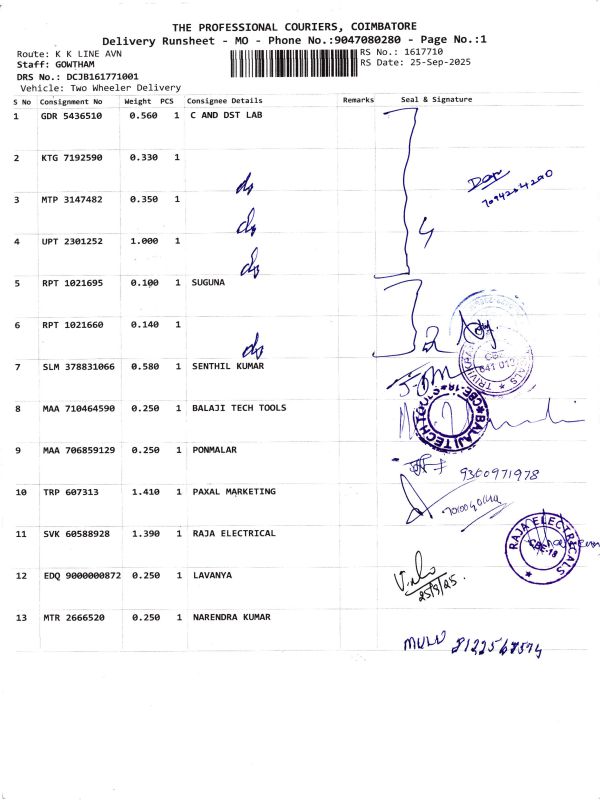 THE PROFESSIONAL COURIERS, COIMBATORE
Delivery Runsheet - MO - Phone No.:9047080280 - Page No.:1
Route: K K LINE AVN
RS No.: 1617710
Staff: GOWTHAM
RS Date: 25-Sep-2025
DRS No.: DCJB161771001
Vehicle: Two Wheeler Delivery
S No Consignment No Weight PCS Consignee Details Remarks Seal & Signature
1 GDR 5436510 0.560 1 C AND DST LAB
2 KTG 7192590 0.330 1
do
3 MTP 3147482 0.350 1
do
4 UPT 2301252 1.000 1
4
do
5 RPT 1021695 0.100 1 SUGUNA
6 RPT 1021660 0.140 1
2
do
CBE
641 012
7 SLM 378831066 0.580 1 SENTHIL KUMAR
8 MAA 710464590 0.250 1 BALAJI TECH TOOLS
BALAJI TECH TOOLS CBE-18
9 MAA 706859129 0.250 1 PONMALAR
9360971978
10 TRP 607313 1.410 1 PAXAL MARKETING
11 SVK 60588928 1.390 1 RAJA ELECTRICAL
RAJA ELECTRICALS
CBE-18
12 EDQ 9000000872 0.250 1 LAVANYA
25/9/25.
13 MTR 2666520 0.250 1 NARENDRA KUMAR